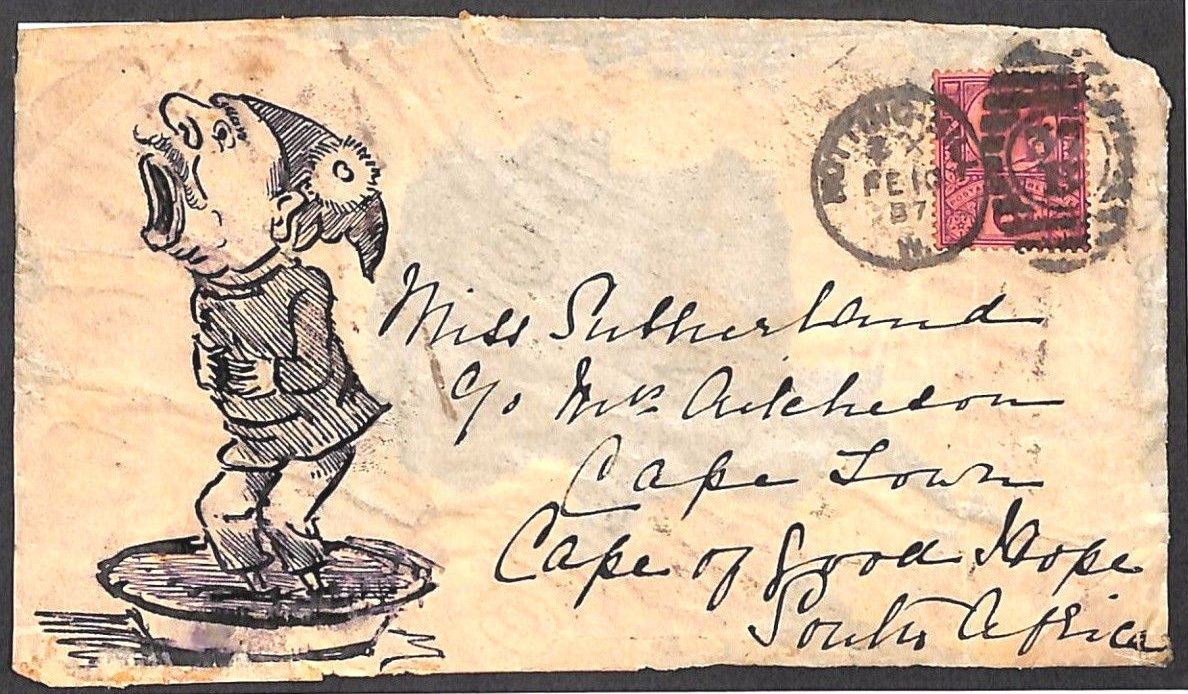 NOTTINGHAM
X
FE 10
87
Miss Sutherland
c/o Mrs Aitchedon
Cape Town
Cape of Good Hope
South Africa